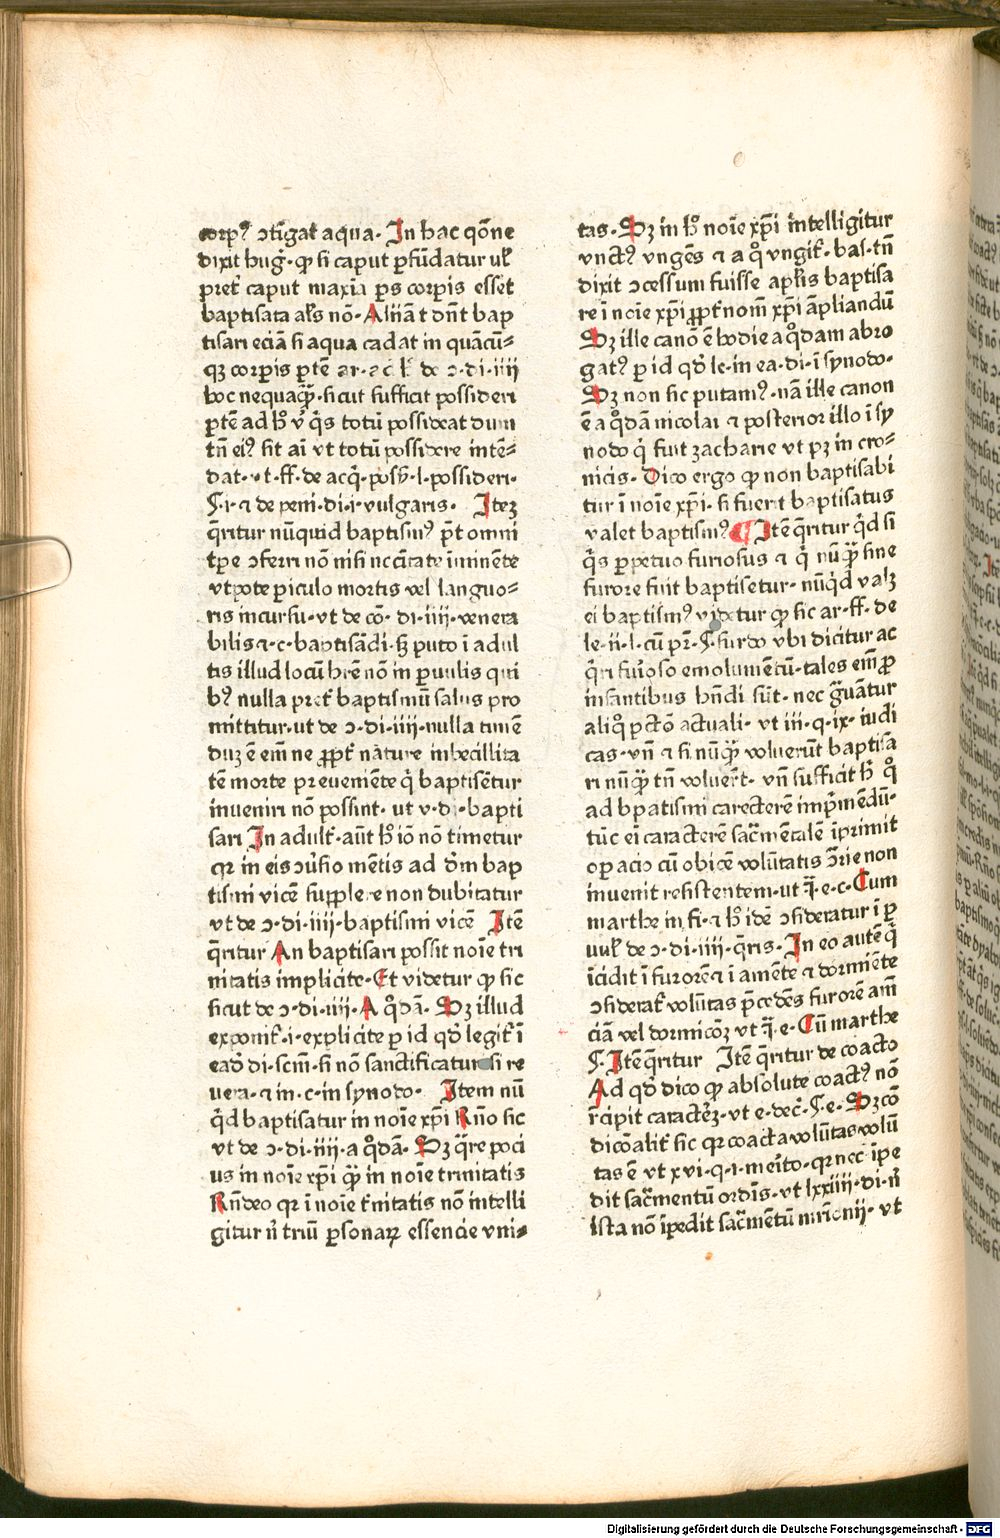 corpꝰ ↄtīgat̄ aqua· In hac qōne
dixit hug̃· ꝙ si caput ꝑfūdatur uł
pret̉ caput maxīa ꝑs corpis esset
baptisata al̉s nō· Alīiāt dn̄t bap
tisari eciā si aqua cadat in quācū⸗
qꝫ corpis ꝑtē ar· de ↄ· di· iiii
hoc nequaq̃ꝫ· sicut sufficit possideri
ꝑtē ad hͦ vͭ q̇s totū possideat dum
tn̄ eiꝰ sit ai᷑ vt totū possidere intē⸗
dat· ut· ff· de acq̇· pos̄· l· possideri·
§· i· ⁊ de peni· di· i· vulgaris· Iteꝫ
q̄ritur nūquid baptismꝰ pͭt omni
tꝑe ↄferri nō nisi nccītate īminēte
vtpote ꝑiculo mortis vel languo⸗
ris incursu· vt de cō· di· iiii· venera
bilis ⁊· c· baptisādi· sꝫ puto ī adul
tis illud locū hr̄e nō in ꝑuulis qui
bꝰ nulla pret̉ baptismū salus pro
mittitur· ut de ↄ· di· iiii· nulla timē
duꝫ ē em̄ ne ꝓpt̉ nature inbecillita
tē morte preuemēte q̇ baptisētur
inueniri nō possint· ut v· di· bapti
sari In adult̉· aūt hͦ iō nō timetur
qr in eis ↄūsio mētis ad dm̄ bap
tismi vicē supplere non dubitatur
vt de ↄ· di· iiii· baptismi vicē Itē
q̄ritur An baptisari possit noīe tri
nitatis implicite· Et videtur ꝙ sic
sicut de ↄ· di· iiii· A q̊dā· Sꝫ illud
exponit̉· i· explicite ꝑ id qd̉ legit̉ ī
ead̉ di· scm̄· si nō sanctificatur si re
uera· ⁊ in· c· in synodo· Item nū
q̇d baptisatur in noīe xp̄i Rn̄o sic
vt de ↄ· di· iiii· a q̊dā· Sꝫ q̄re poci
us in noīe xp̄i q̃ꝫ in noīe trinitatis
Rn̄deo qr ī noīe t̉nitatis nō intelli
gitur nͥ triū ꝑsonaꝝ essencie vni⸗
tas· Sꝫ in hͦ noīe xp̄i intelligitur
vnctꝰ vngēs ⁊ a q̊ vngit̉· bas· tn̄
dixit ↄcessum fuisse apl̉is baptisa
re ī noīe xp̄i ꝓpt̉ nom̄ xp̄i āpliandū
Sꝫ ille canō ē hodie a q̊dam abro
gatꝰ ꝑ id qd̉ le· in ea· di· ī synodo·
Sꝫ non sic putamꝰ· nā ille canon
ē a q̊dā nicolai ⁊ posterior illo ī sy
nodo q̇ fuit zacharie vt pꝫ in cro⸗
nicis· Dico ergo ꝙ non baptisabi
tur ī noīe xp̄i· si fuerit baptisatus
valet baptismꝰ ¶ Itē q̄ritur q̇d si
q̇s ꝑpetuo furiosus ⁊ q̇ nūq̃ꝫ sine
furore fuit baptisetur· nūq̇d valꝫ
ei baptismꝰ videtur ꝙ sic ar· ff· de
le· ii· l· cū pr̄· §· surdo vbi dicitur ac
q̇ri furioso emolumentū· tales em̄ ꝓ
infantibus hn̄di sūt· nec gͣuātur
aliq̊ pctō actuali· vt iii· q· ix· iudi
cas· vn̄ ⁊ si nūq̃ꝫ voluerūt baptisa
ri nūq̃ꝫ tn̄ voluer̄t· vn̄ sufficit hͨ q̊
ad bpatismi carecterē imp̉mēdū·
tūc ei caracterē sacͣmentalē īprimit
opacio cū obicē volūtatis ↄ̄rie non
inuenit resistentem· ut q̄· e· c· Cum
marthe in fi· ⁊ hͦ idē ↄsideratur ī ꝑ
uul̉ de ↄ· di· iiii· q̄ris· In eo autē q̇
īcidit ī furorē ⁊ ī amēte ⁊ dormiēte
ↄsiderat̉ volūtas p̄cedēs furorē am̄
ciā vel dormicōꝫ vt q̄· e· Cū marthe
§· Itē q̄ritur Itē q̄ritur de coacto
Ad qd̉ dico ꝙ absolute coactꝰ nō
r̄cipit caractēꝫ· vt e· dec̉· §· e· Sꝫ cō
dicōalit̉ sic qr coacta volūtas volū
tas ē vt xvi· q· i· merito· qr nec īpe
dit sacͣmentū ordis· vt lxxiiii· di· nͥ
ista nō īpedit sacͣmētū mr̄ionii· vt
Digitalisierung gefördert durch die Deutsche Forschungsgemeinschaft - DFG